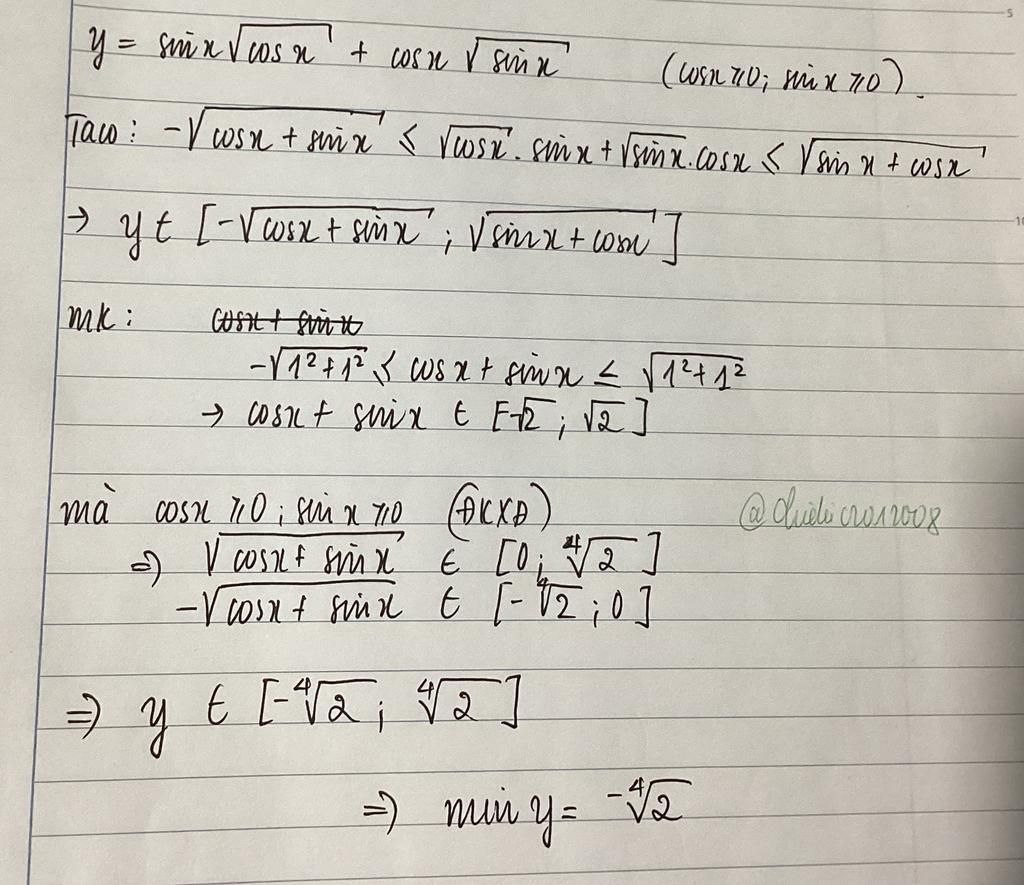 y = sin x √cos x + cos x √sin x (cosx ≥ 0; sin x ≥ 0).
Ta có: -√cosx + sin x ≤ √cosx . sin x + √sin x . cosx ≤ √sin x + cosx
→ y ∈ [-√cosx + sin x ; √sin x + cosx ]
mk: cosx + sin x
-√1² + 1² ≤ cos x + sin x ≤ √1² + 1²
→ cosx + sin x ∈ [-√2 ; √2 ]
mà cosx ≥ 0 ; sin x ≥ 0 (ĐKXĐ)
⇒ √cosx + sin x ∈ [0; ⁴√2 ]
-√cosx + sin x ∈ [-⁴√2 ; 0 ]
⇒ y ∈ [-⁴√2 ; ⁴√2 ]
⇒ min y = -⁴√2